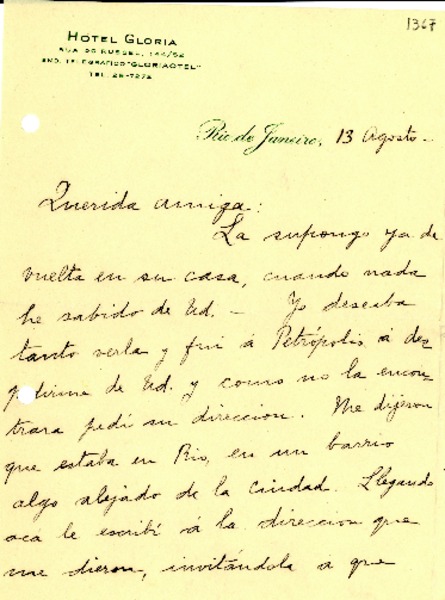 1367
HOTEL GLORIA
RUA DO RUSSEL, 144/52
END. TELEGRAFICO "GLORIAOTEL"
TEL. 25-7272
Rio de Janeiro, 13 Agosto -
Querida amiga:
La supongo ya de
vuelta en su casa, cuando nada
he sabido de Ud. - Yo deseaba
tanto verla y fui á Petrópolis á des-
pedirme de Ud. y como no la encon-
trara pedí su direccion. Me dijeron
que estaba en Rio, en un barrio
algo alejado de la ciudad. Llegando
aca le escribí á la direccion que
me dieron, invitándola á que